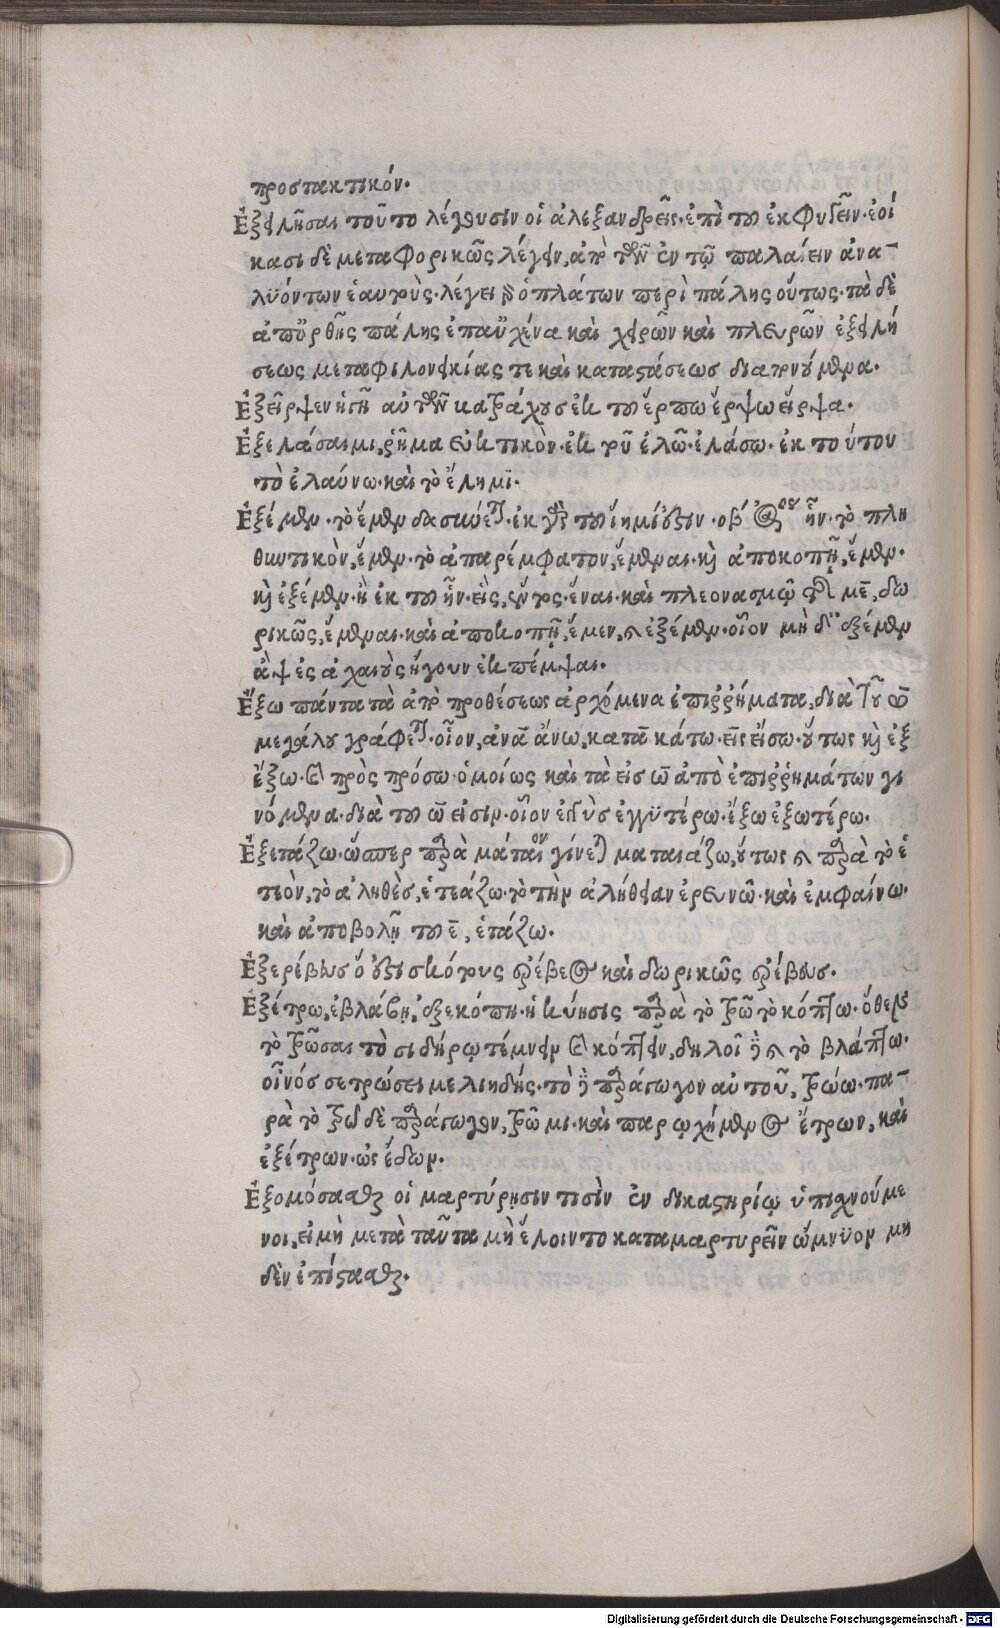 προστακτικόν.
Ἐξειλῆσαι τοῦτο λέγουσιν οἱ ἀλεξανδρεῖς. ἐπὶ τοῦ ἐκφυγεῖν. ἐοί
κασι δὲ μεταφορικῶς λέγειν, ἀπὸ τῶν ἐν τῷ παλαίειν ἀνα-
λυόντων ἑαυτοὺς. λέγει γὰρ ὁ πλάτων περὶ πάλης οὕτως. τὰ δὲ
ἀπ' ὀρθῆς πάλης ἐπ' αὐχένα καὶ χειρῶν καὶ πλευρῶν ἐξειλή
σεως μετὰ φιλονεικίας τε καὶ καταστάσεως διαπονούμενα.
Ἐξεῖρψεν ἡ γῆ αὐτῶν κατὰ τάχος ἐκ τοῦ ἕρπω ἕρψω εἷρψα.
Ἐξελάσαιμι, ῥῆμα εὐκτικὸν. ἐκ τοῦ ἐλῶ. ἐλάσω. ἐκ τούτου
τὸ ἐλαύνω. καὶ τὸ ἔλημι.
Ἐξέμεν. τὸ ἕμεν δασύνεται. ἐκ γὰρ τοῦ ἵημί ἐστιν. ὁ β ἀόριστος ἧν. τὸ πλη
θυντικὸν, ἕμεν. τὸ ἀπαρέμφατον, ἕμεναι. καὶ ἀποκοπῇ, ἕμεν.
καὶ ἐξέμεν. ἢ ἐκ τοῦ ἧν. εἷς, ἕντος. ἕναι. καὶ πλεονασμῷ τῆς με, δω
ρικῶς, ἕμεναι. καὶ ἀποκοπῇ, ἕμεν, καὶ ἐξέμεν. οἷον μὴ δ' ἐξέμεν
ἂψ ἐς ἀχαιοὺς ἤγουν ἐκπέμψαι.
Ἔξω πάντα τὰ ἀπὸ προθέσεως ἀρχόμενα ἐπιῤῥήματα, διὰ τοῦ ω
μεγάλου γράφεται. οἷον, ἀνὰ ἄνω, κατὰ κάτω. εἰς εἴσω. οὕτως καὶ ἐξ
ἔξω. καὶ πρὸς πρόσω. ὁμοίως καὶ τὰ εἰς ω ἀπὸ ἐπιῤῥημάτων γι
νόμενα. διὰ τοῦ ω εἰσιν. οἷον ἐγγὺς ἐγγυτέρω. ἔξω ἐξωτέρω.
Ἐξετάζω. ὥσπερ παρὰ μάταιον γίνεται ματαιάζω, οὕτως καὶ παρὰ τὸ ἐ
τεὸν, τὸ ἀληθὲς, ἐτεάζω. τὸ τὴν ἀλήθειαν ἐρευνῶ. καὶ ἐμφαίνω.
καὶ ἀποβολῇ τοῦ ε, ἐτάζω.
Ἐξερέβευς ὅ ἐστι σκότους ἐρέβεος καὶ δωρικῶς ἐρέβευς.
Ἐξέτρω, ἐβλάβη, ἐξεκόπη. ἡ κύησις παρὰ τὸ τρῶ τὸ κόπτω. ὅθεν
τὸ τρῶσαι τὸ σιδήρῳ τέμνειν καὶ κόπτειν, δηλοῖ δὲ καὶ τὸ βλάπτω.
οἶνός σε τρώσει μελιηδής. τὸ δὲ παράγωγον αὐτοῦ, τρώω. πα-
ρὰ τὸ τρῶ δὲ παράγωγον, τρῶμι. καὶ παρῳχημένος ἔτρων, καὶ
ἐξέτρων. ὡς ἔδων.
Ἐξομόσασθαι οἱ μαρτύρησιν τισὶν ἐν δικαστηρίῳ ὑπισχνούμε
νοι, εἰ μὴ μετὰ ταῦτα μὴ ἕλοιντο καταμαρτυρεῖν ὤμνυον μη
δὲν ἐπίστασθαι.
Digitalisierung gefördert durch die Deutsche Forschungsgemeinschaft - DFG